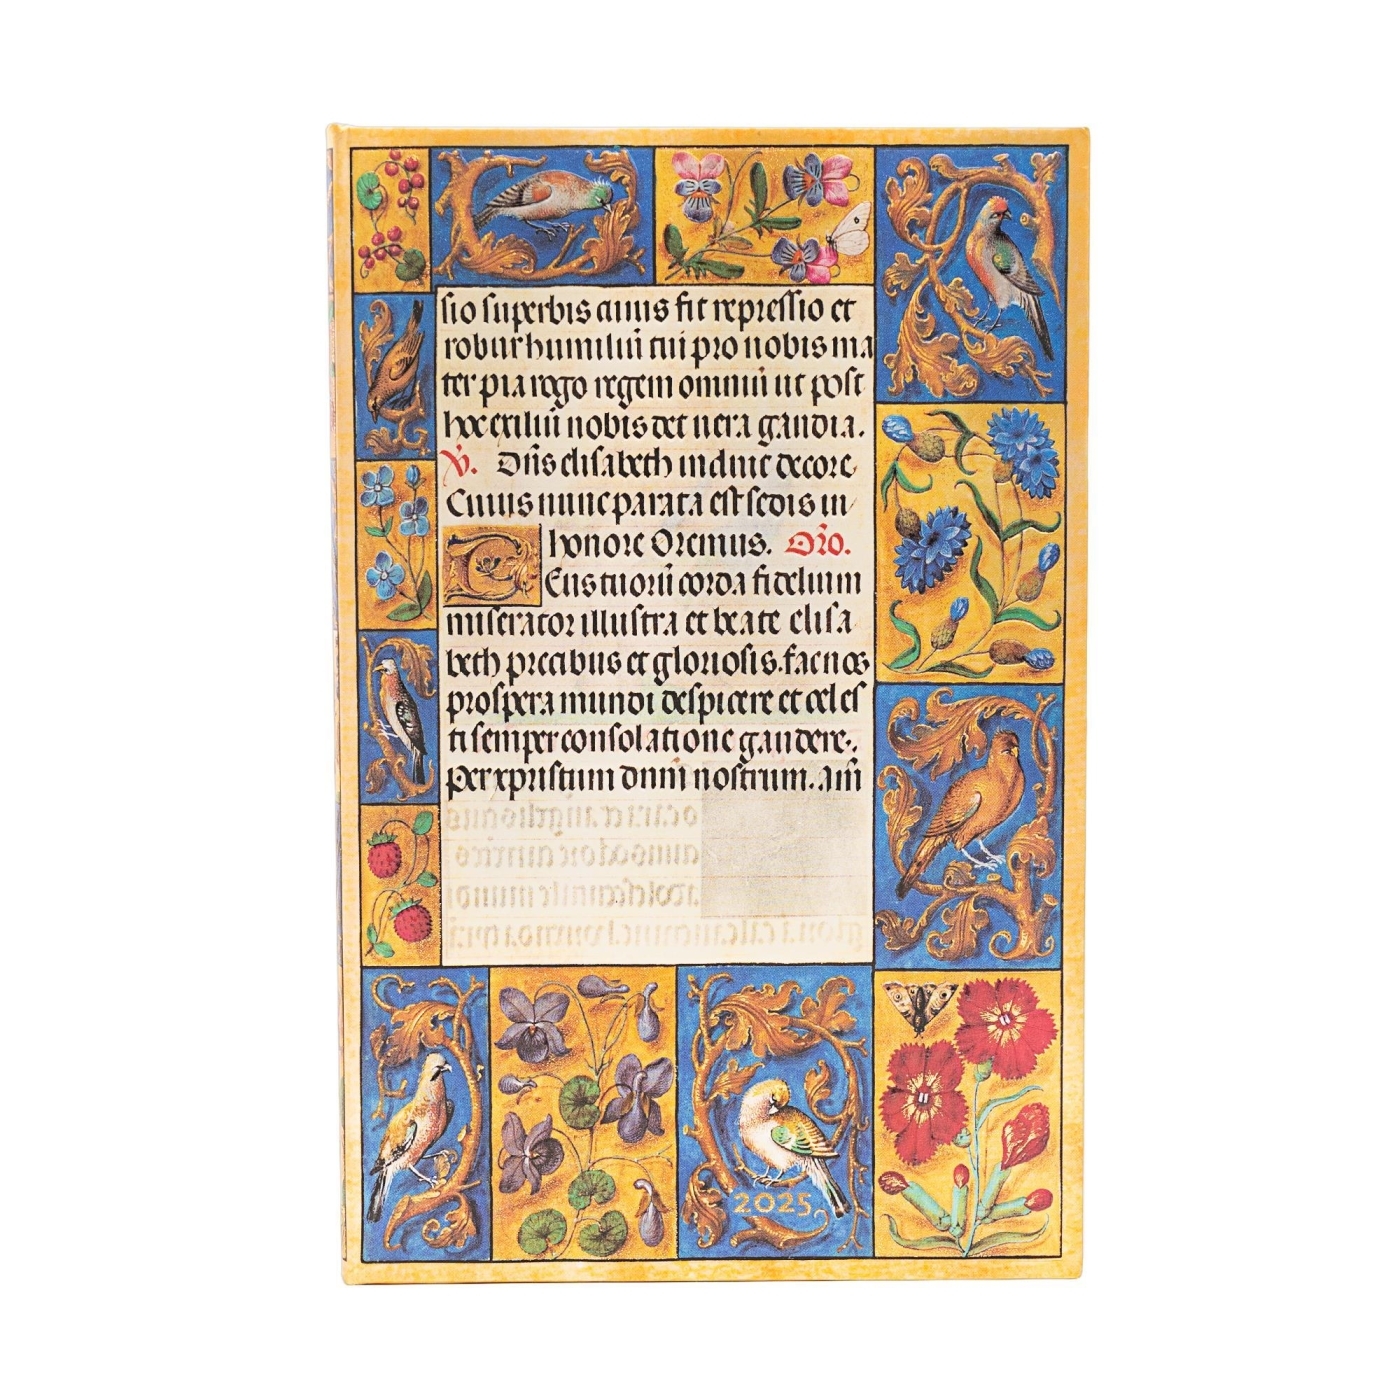 sio superbis cuius fit repressio et
robur humiliũ tui pro nobis ma
ter pia rogo regem omniũ ut post
hoc exiliũ nobis det uera gaudia.
V. Dñs elisabeth induit decore
Cuius nunc parata est sedis in
honore Oremus. Oro.
Deus tuorũ corda fidelium
miserator illustra et beate elisa
beth precibus et gloriosis. fac nos
prospera mundi despicere et celes
ti semper consolatione gaudere.
Per xpristum dnm̃ nostrum. am̃
2025